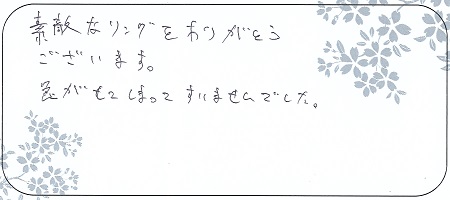 素敵なリングをありがとう
ございます。
急がせてしまって すいませんでした。